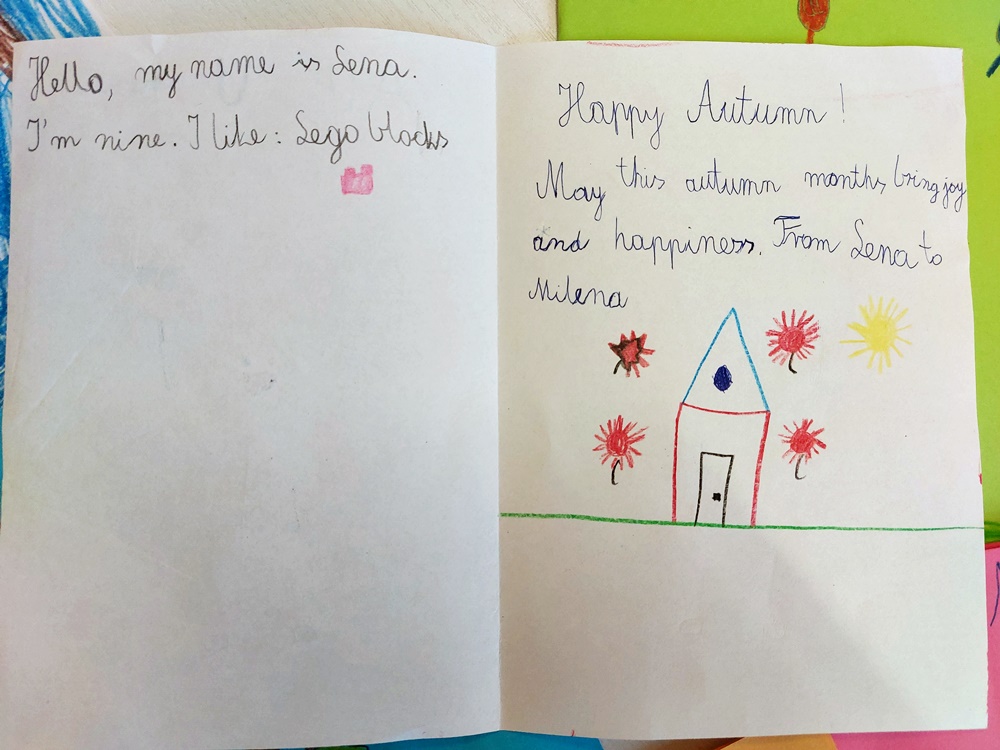 Hello, my name is Lena.
I'm nine. I like: Lego blocks
Happy Autumn!
May this autumn months bring joy
and happiness. From Lena to
Milena